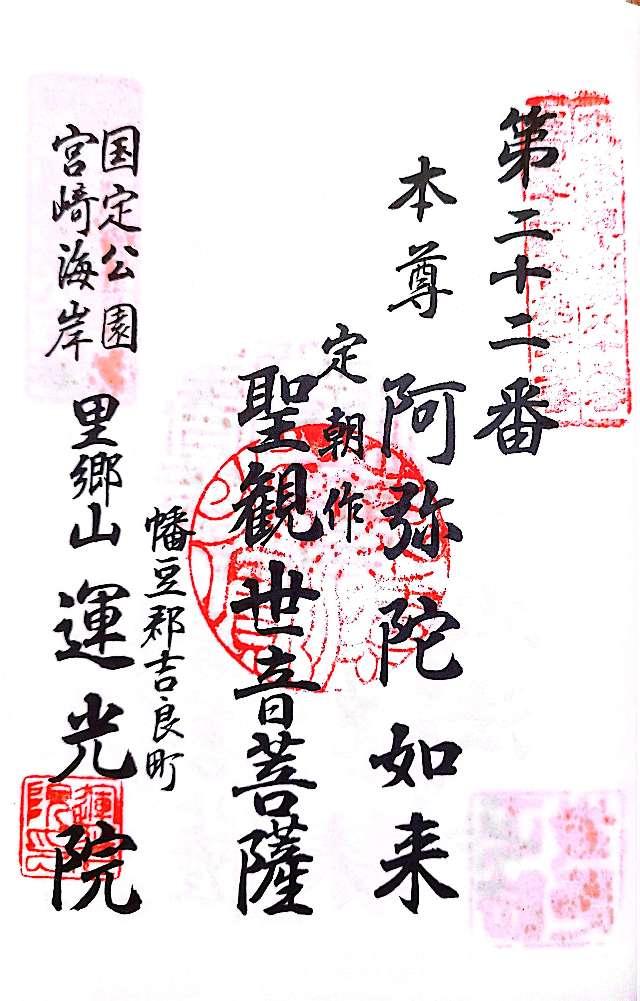 第二十二番
本尊 阿弥陀如来
定朝作
聖観世音菩薩
幡豆郡吉良町
国定公園
宮崎海岸
里郷山 運光院